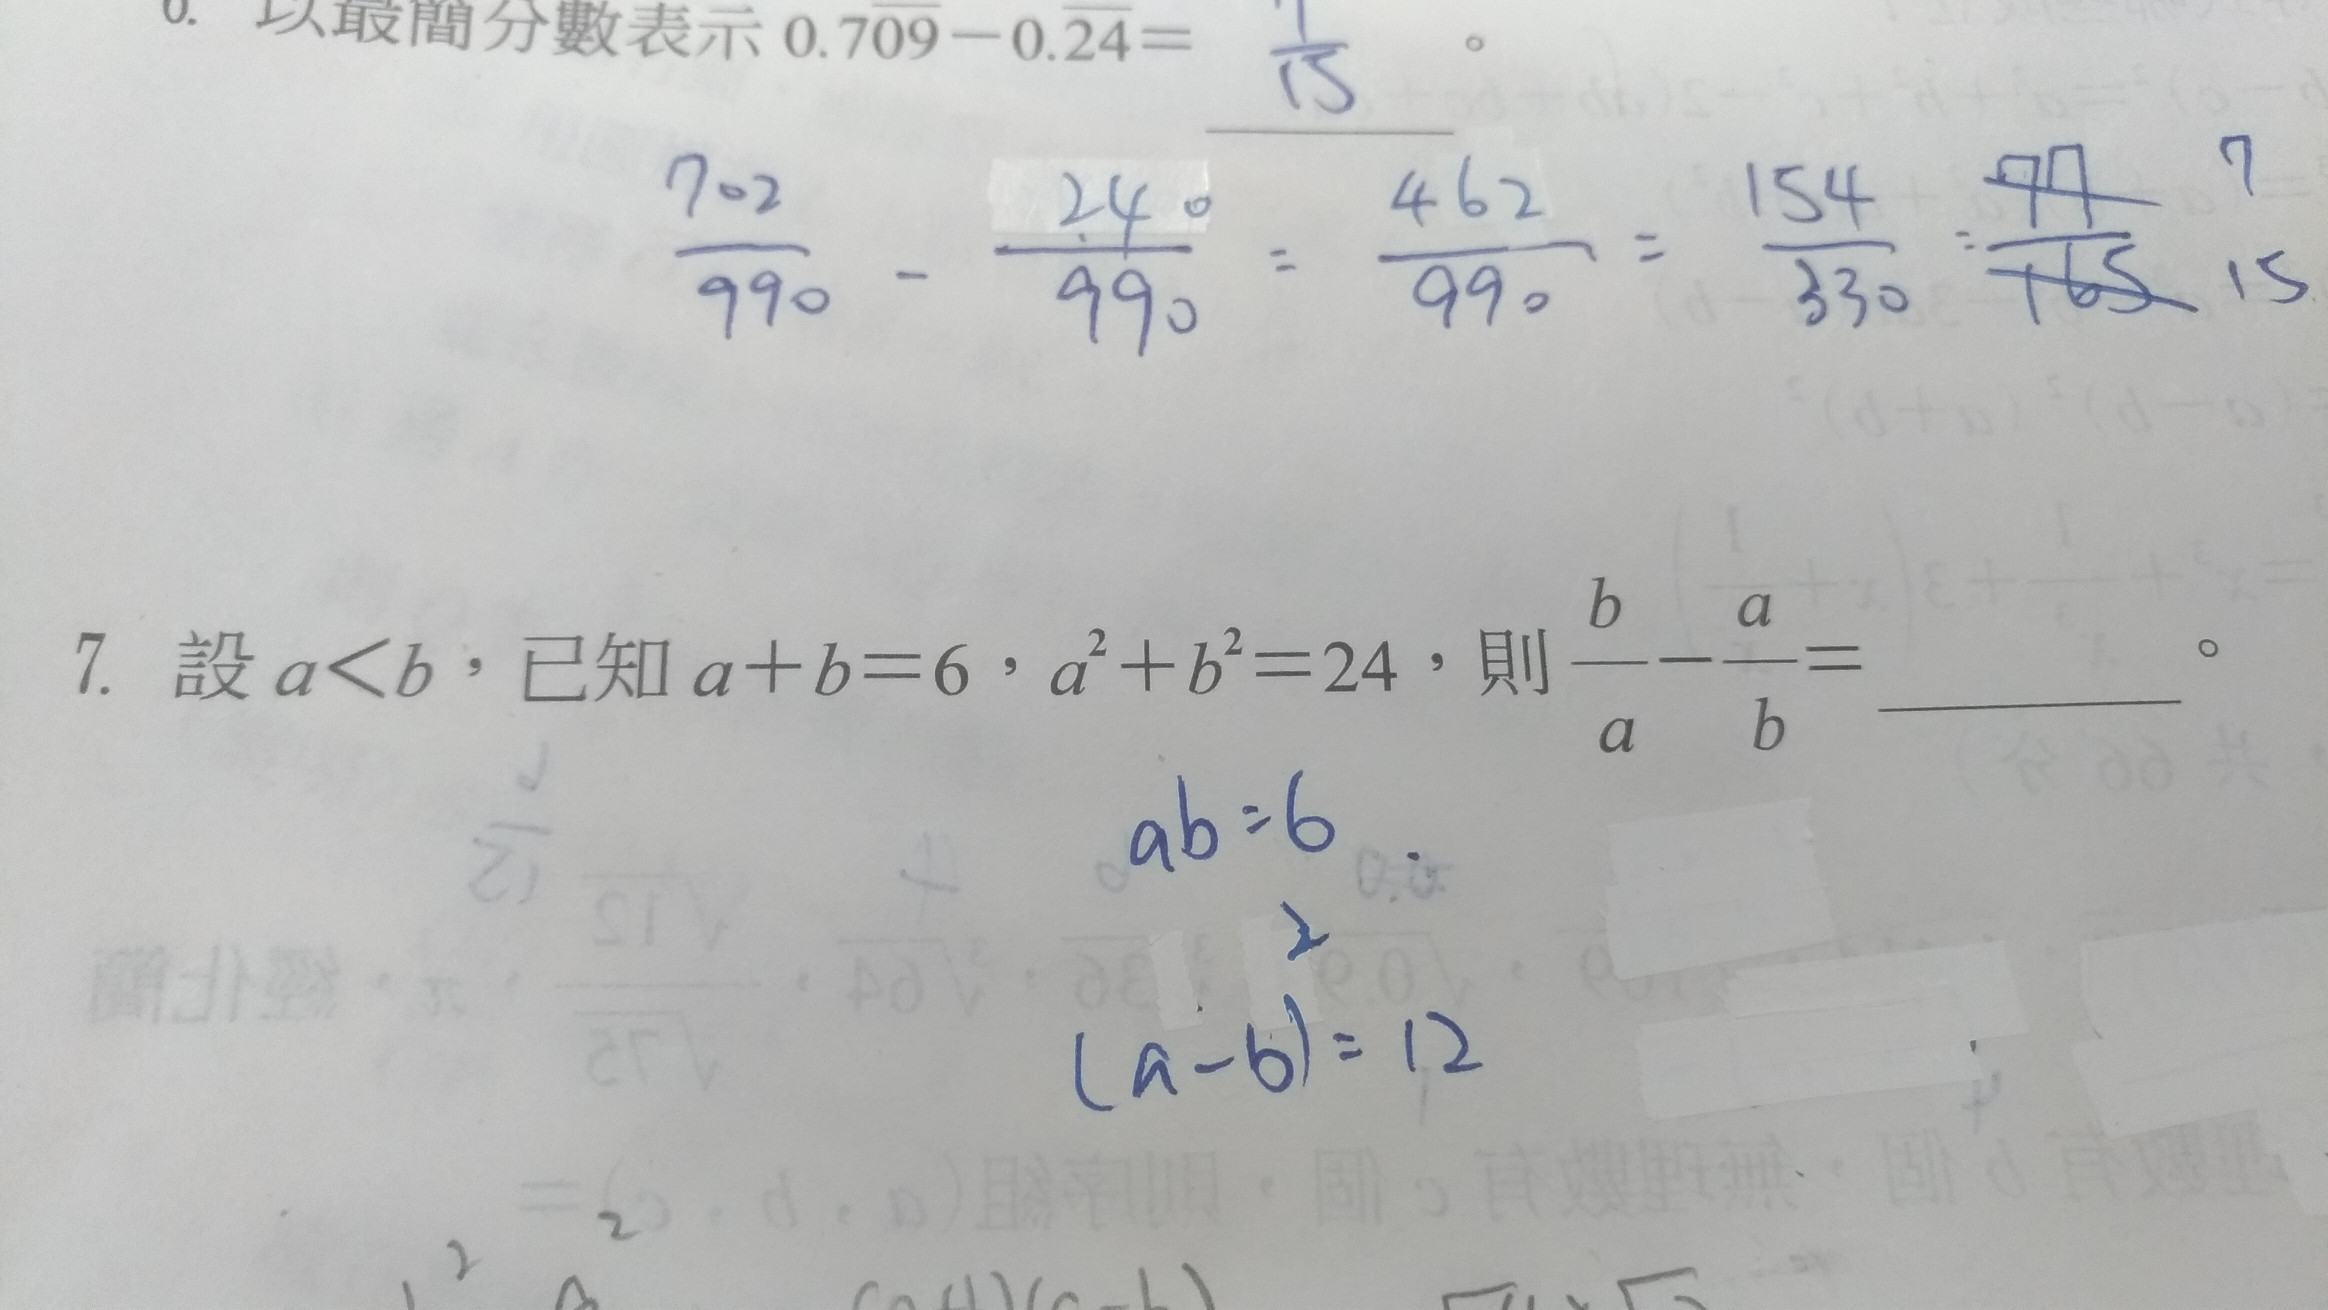 6. 以最簡分數表示 0.7\overline{09}－0.\overline{24}＝ \frac{7}{15} 。
\frac{702}{990} - \frac{240}{990} = \frac{462}{990} = \frac{154}{330} = \frac{77}{165} \frac{7}{15}
7. 設 a＜b，已知 a＋b＝6，a²＋b²＝24，則 \frac{b}{a}－\frac{a}{b}＝ 。
ab=6
(a-b)²=12